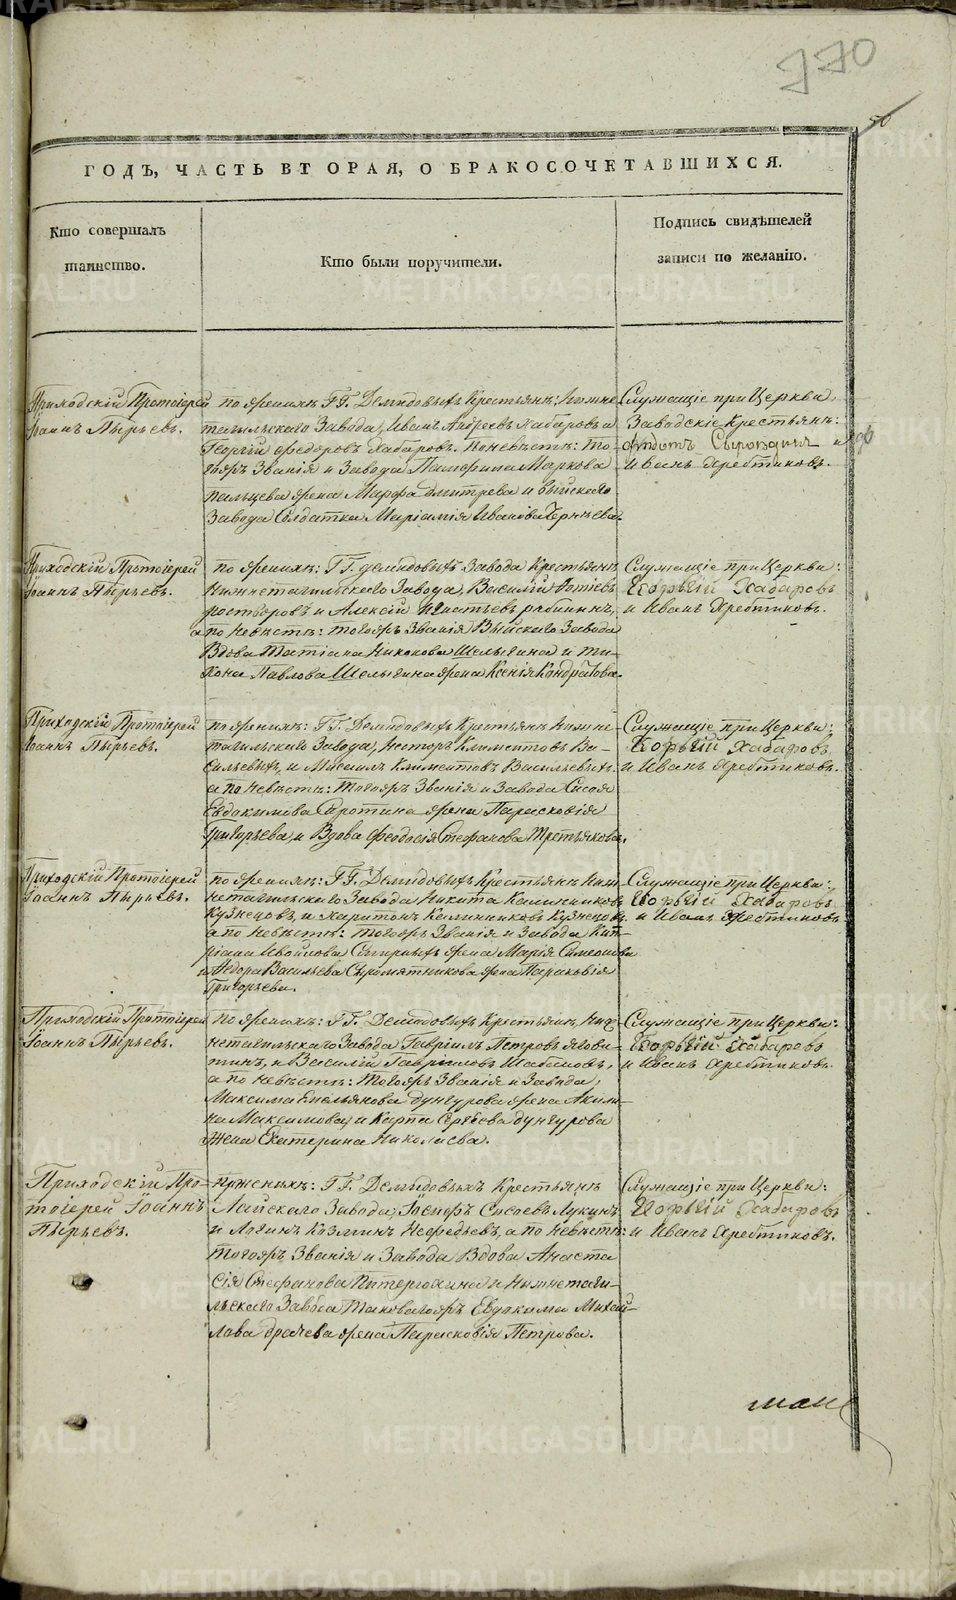 770
56
ГОДЪ, ЧАСТЬ ВТОРАЯ, О БРАКОСОЧЕТАВШИХСЯ.
Кто совершалъ
таинство.
Кто были поручители.
Подпись свидѣтелей
записи по желанію.
Приходскій Протоіерей
Іоаннъ Пырьевъ.
по женихѣ Г.Г. Демидовыхъ Крестьянѣ: Нижне
тагильскаго Завода, Иванъ Андреевъ Хабаровъ и
Георгій Федоровъ Хабаровъ. По невѣстѣ: то-
гожъ Званія и Завода Памфила Маркова
пальцева жена Марфа Дмитрева и выйскаго
Завода Солдатка Маріамія Иванова
Служащіе при Церкви,
Заводскіе Крестьянѣ:
Федотъ и
Иванъ Хребтиковъ.
Приходскій Протоіерей
Іоаннъ Пырьевъ.
по женихѣ: Г.Г. Демидовыхъ Завода Крестьянѣ
Нижнетагильскаго Завода, Василій
и Алексій Игнатьевъ
а по Невѣстѣ: тогожъ Званія Выйскаго Завода
Вдова Татіана Никонова Шелыгина и ти-
хона Павлова Шелыгина жена Ксенія Кондратова.
Служащіе при Церкви:
Георгій Хабаровъ
и Иванъ Хребтиковъ.
Приходскій Протоіерей
Іоаннъ Пырьевъ.
по женихѣ: Г.Г. Демидовыхъ Крестьянѣ Нижне
тагильскаго Завода, Несторъ Климентовъ Ва-
сильевыхъ, и Михаилъ Климентовъ Васильевыхъ.
а по Невѣстѣ: Тогожъ Званія и Завода Сысоя
Евдокимова Сиротина жена Парасковія
Григорьева, и Вдова Феодосія Стефанова Третьякова.
Служащіе при Церкви:
Георгій Хабаровъ
и Иванъ Хребтиковъ.
Приходскій Протоіерей
Іоаннъ Пырьевъ.
по женихѣ: Г.Г. Демидовыхъ Крестьянѣ Ниж-
нетагильскаго Завода Никита Калинниковъ
Кузнецовъ, и Харитонъ Калинниковъ Кузнецовъ
а по Невѣстѣ: Тогожъ Званія и Завода Кип-
ріана жена Марія Симеонова
и Федора Васильева Сыромятникова жена Парасковія
Григорьева.
Служащіе при Церкви:
Георгій Хабаровъ
и Иванъ Хребтиковъ
Приходскій Протоіерей
Іоаннъ Пырьевъ.
По женихѣ: Г.Г. Демидовыхъ Крестьянѣ Ниж-
нетагильскаго Завода Гавріилъ Петровъ
и Василій Гавриловъ Шабановъ,
а по невѣстѣ: Тогожъ Званія и Завода,
Максима Емельянова дунгурова жена Акили-
на Максимова, и Карпа Сергѣева дунгурова
жена Екатерина Николаева.
Служащіе при Церкви:
Георгій Хабаровъ
и Иванъ Хребтиковъ.
Приходскій Про-
тоіерей Іоаннъ
Пырьевъ.
По женихѣ: Г.Г. Демидовыхъ Крестьянѣ
Лайскаго Завода, Сысоевъ Лукинъ
и Логинъ Козминъ Нефедьевъ, а по Невѣстѣ:
тогожъ Званія и Завода Вдова Анаста
сія Стефанова и Нижнетаги-
льскаго Завода таковагожъ Евдокима Михай-
лова жена Парасковія Петрова.
Служащіе при Церкви:
Георгій Хабаровъ
и Иванъ Хребтиковъ.